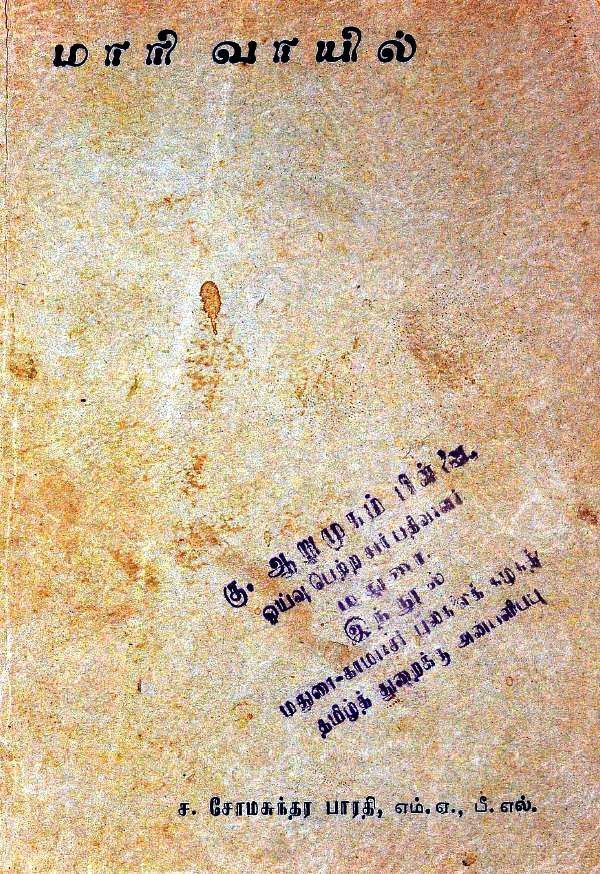 மாரி வாயில்
கு. ஆறுமுகம் பிள்ளை.
ஓய்வு பெற்ற சார் பதிவாளர்
மதுரை.
இந்நூல்
மதுரை-காமராசர் பல்கலைக் கழகத்
தமிழ்த் துறைக்கு அன்பளிப்பு
ச. சோமசுந்தர பாரதி, எம். ஏ., பீ. எல்.